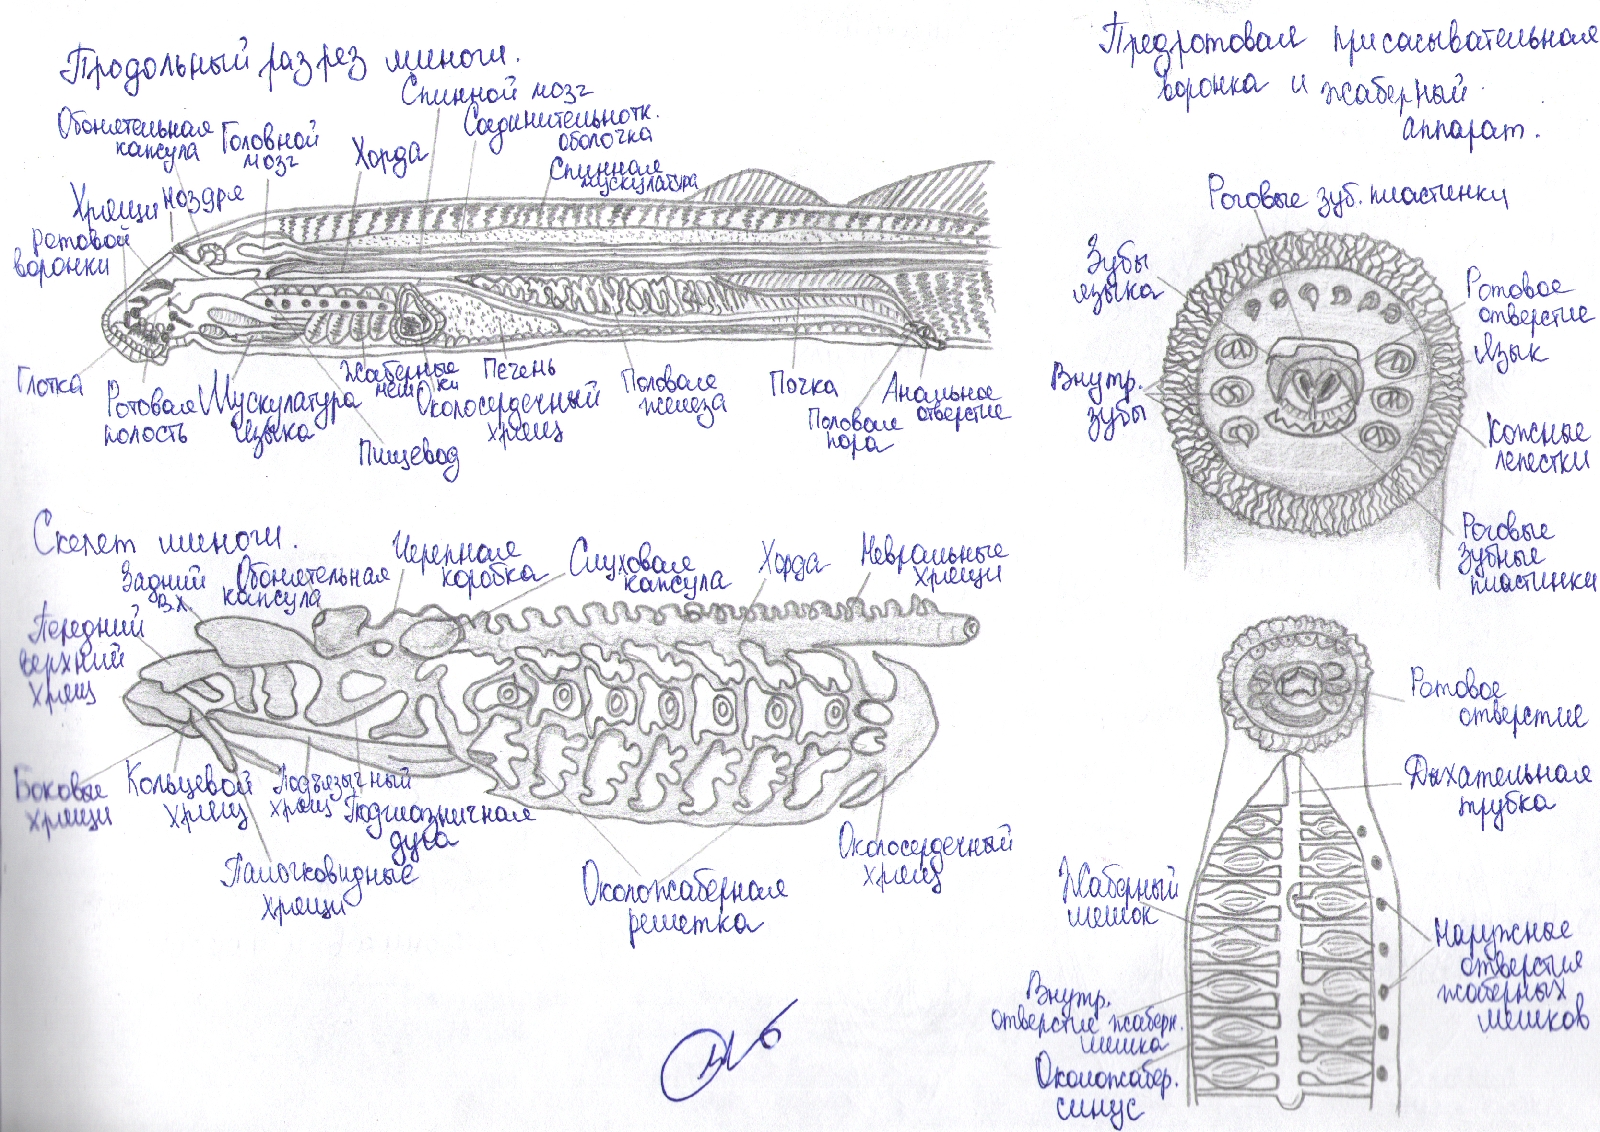 Продольный разрез миноги.
Обонятельная
капсула
Головной
мозг
Хорда
Спинной мозг
Соединительнотк.
оболочка
Спинная
мускулатура
Хрящи
ротовой
воронки
ноздря
Глотка
Ротовая
полость
Мускулатура
языка
Пищевод
Жаберные
мешки
Околосердечный
хрящ
Печень
Половая
железа
Почка
Половая
пора
Анальное
отверстие
Скелет миноги.
Передний
верхний
хрящ
Задний
в.х.
Обонятельная
капсула
Черепная
коробка
Слуховая
капсула
Хорда
Невральные
хрящи
Боковые
хрящи
Кольцевой
хрящ
Подъязычный
хрящ
Подглазничная
дуга
Палочковидные
хрящи
Околожаберная
решетка
Околосердечный
хрящ
Предротовая присасывательная
воронка и жаберный
аппарат.
Роговые зуб. пластинки
Зубы
языка
Внутр.
зубы
Ротовое
отверстие
Язык
Кожные
лепестки
Роговые
зубные
пластинки
Ротовое
отверстие
Дыхательная
трубка
Жаберный
мешок
Внутр.
отверстие жаберн.
мешка
Околожабер.
синус
Наружные
отверстия
жаберных
мешков